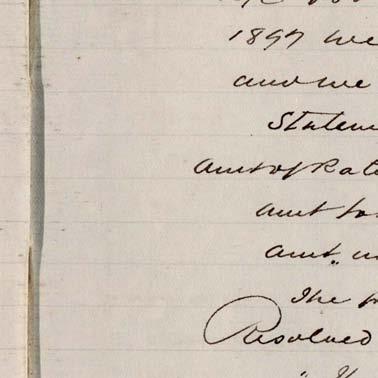 1897 we
and we
Statem
Amt of Rate
Amt
Amt
The
Resolved